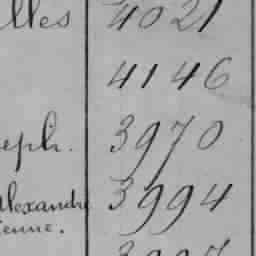 lles 4021
4146
eph. 3970
Alexandre 3994
ienne.